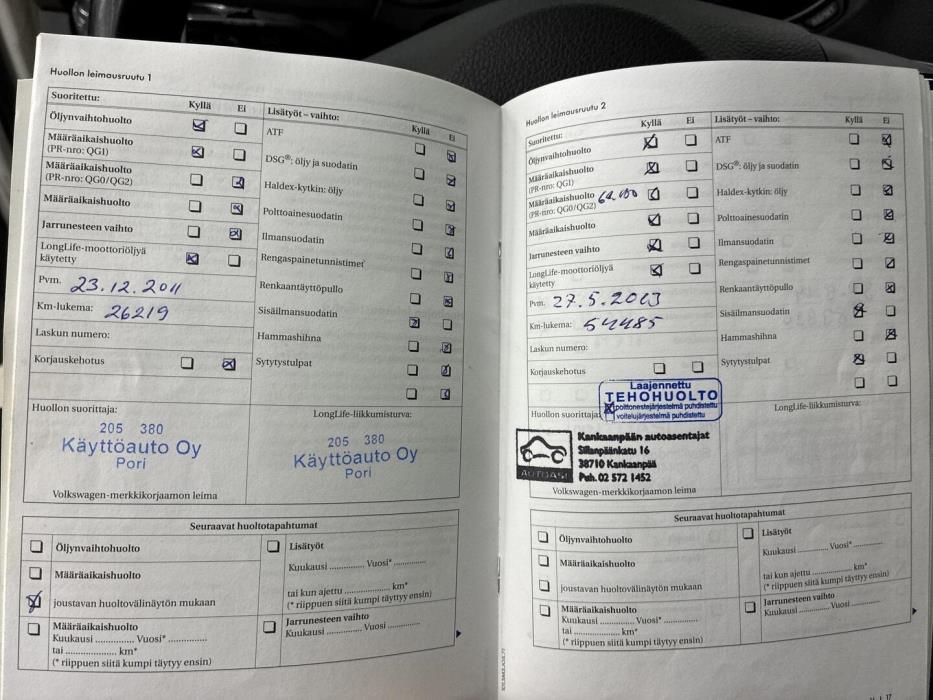 Huollon leimausruutu 1
Suoritettu: Kyllä Ei
Öljynvaihtohuolto
Määräaikaishuolto
(PR-nro: QG1)
Määräaikaishuolto
(PR-nro: QG0/QG2)
Määräaikaishuolto
Jarrunesteen vaihto
LongLife-moottoriöljyä
käytetty
Pvm. 23.12.2011
Km-lukema: 26219
Laskun numero:
Korjauskehotus
Lisätyöt – vaihto: Kyllä Ei
ATF
DSG®: öljy ja suodatin
Haldex-kytkin: öljy
Polttoainesuodatin
Ilmansuodatin
Rengaspainetunnistimet
Renkaantäyttöpullo
Sisäilmansuodatin
Hammashihna
Sytytystulpat
Huollon suorittaja:
205 380
Käyttöauto Oy
Pori
LongLife-liikkumisturva:
205 380
Käyttöauto Oy
Pori
Volkswagen-merkkikorjaamon leima
Seuraavat huoltotapahtumat
Öljynvaihtohuolto
Määräaikaishuolto
joustavan huoltovälinäytön mukaan
Määräaikaishuolto
Kuukausi .............. Vuosi* ..............
tai .............. km*
(* riippuen siitä kumpi täytyy ensin)
Lisätyöt
Kuukausi .............. Vuosi* ..............
tai kun ajettu .............. km*
(* riippuen siitä kumpi täyttyy ensin)
Jarrunesteen vaihto
Kuukausi .............. Vuosi* ..............
Huollon leimausruutu 2
Suoritettu: Kyllä Ei
Öljynvaihtohuolto
Määräaikaishuolto
(PR-nro: QG1)
Määräaikaishuolto
(PR-nro: QG0/QG2)
Määräaikaishuolto
Jarrunesteen vaihto
LongLife-moottoriöljyä
käytetty
Pvm. 27.5.2013
Km-lukema: 54485
Laskun numero:
Korjauskehotus
Lisätyöt – vaihto: Kyllä Ei
ATF
DSG®: öljy ja suodatin
Haldex-kytkin: öljy
Polttoainesuodatin
Ilmansuodatin
Rengaspainetunnistimet
Renkaantäyttöpullo
Sisäilmansuodatin
Hammashihna
Sytytystulpat
Laajennettu
TEHOHUOLTO
polttonestejärjestelmä puhdistettu
voitelujärjestelmä puhdistettu
Huollon suorittaja:
AUTOASI
Kankaanpään autoasentajat
Sillanpäänkatu 16
38710 Kankaanpää
Puh. 02 572 1452
LongLife-liikumisturva:
Volkswagen-merkkikorjaamon leima
Seuraavat huoltotapahtumat
Öljynvaihtohuolto
Määräaikaishuolto
joustavan huoltovälinäytön mukaan
Määräaikaishuolto
Kuukausi .............. Vuosi* ..............
tai .............. km*
(* riippuen siitä kumpi täytyy ensin)
Lisätyöt
Kuukausi .............. Vuosi* ..............
tai kun ajettu .............. km*
(* riippuen siitä kumpi täyttyy ensin)
Jarrunesteen vaihto
Kuukausi .............. Vuosi* ..............